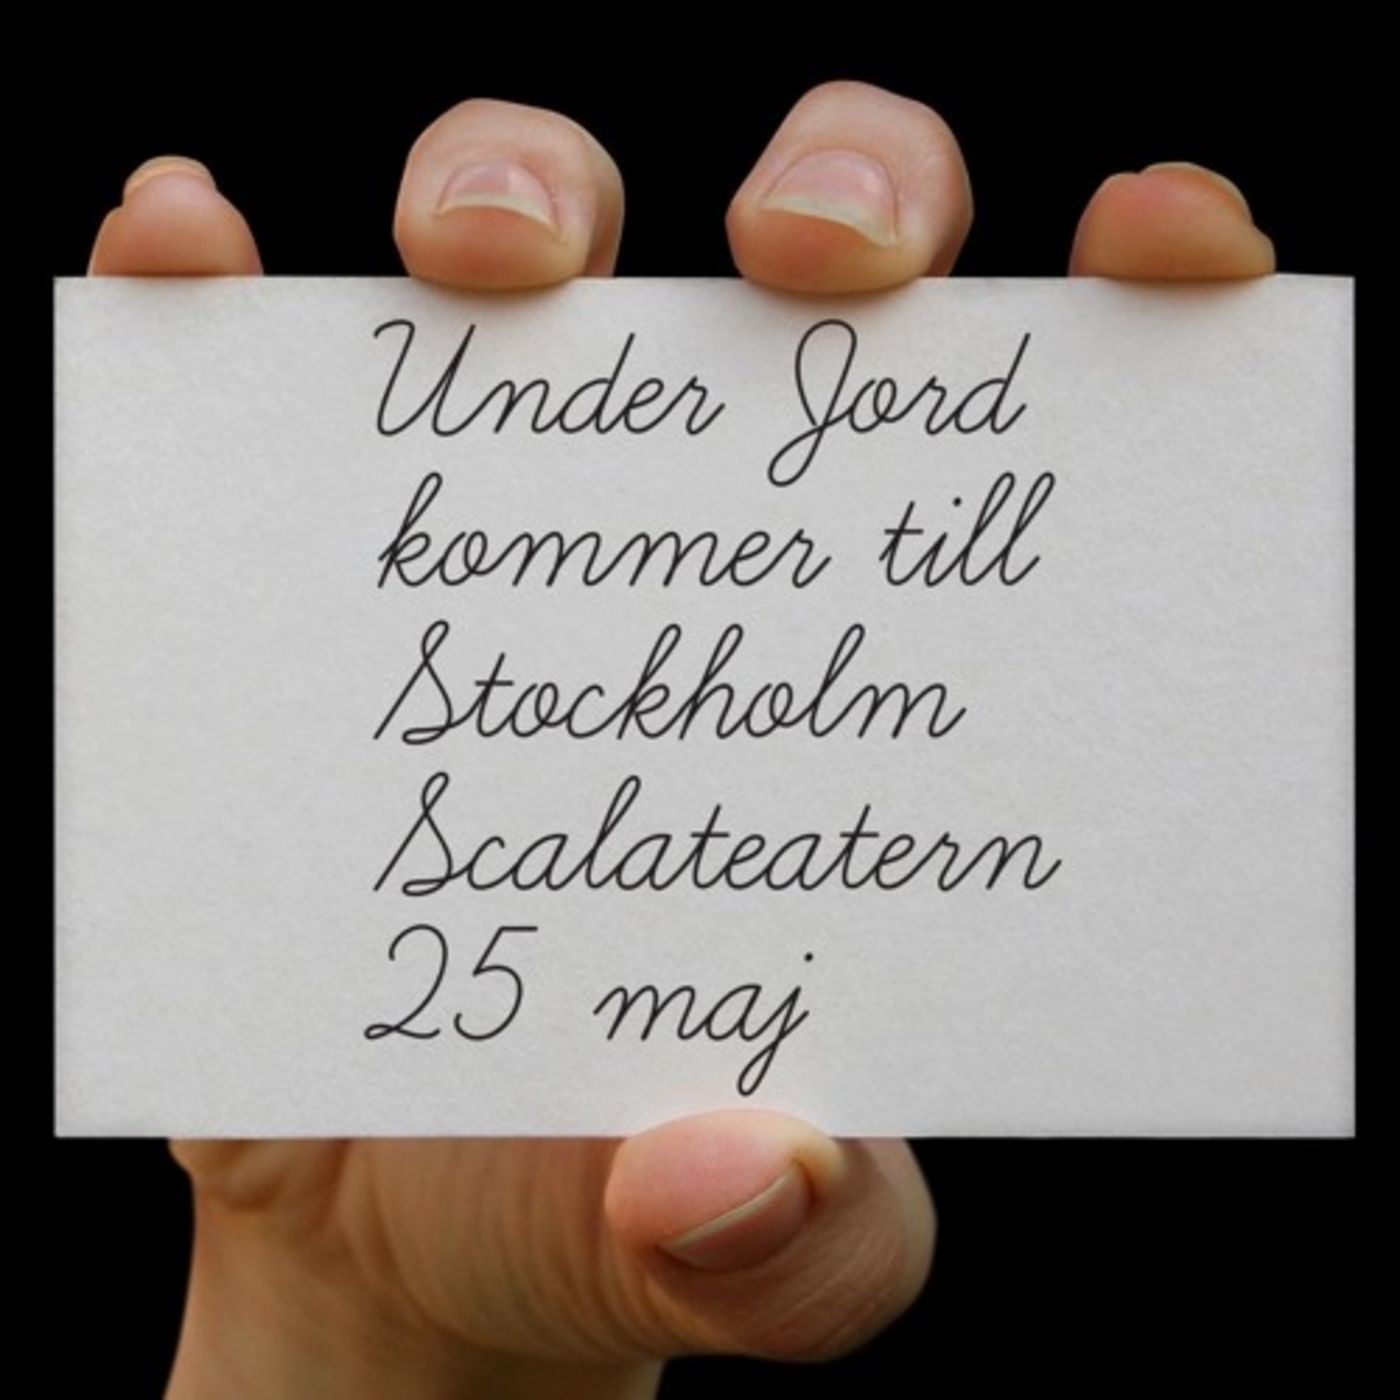 Under Jord
kommer till
Stockholm
Scalateatern
25 maj